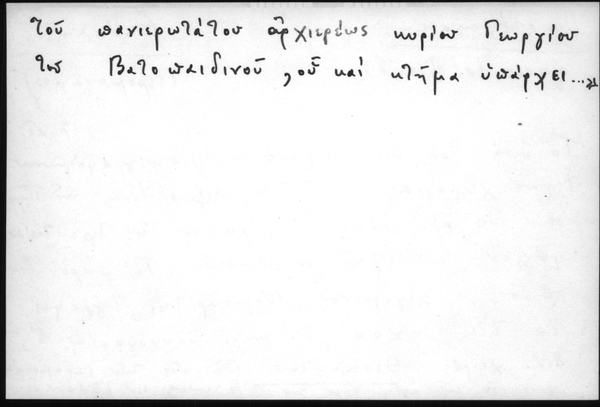 τοῦ πανιερωτάτου ἀρχιερέως κυρίου Γεωργίου
του Βατοπαιδινοῦ, οὗ καί κτῆμα ὑπάρχει...»